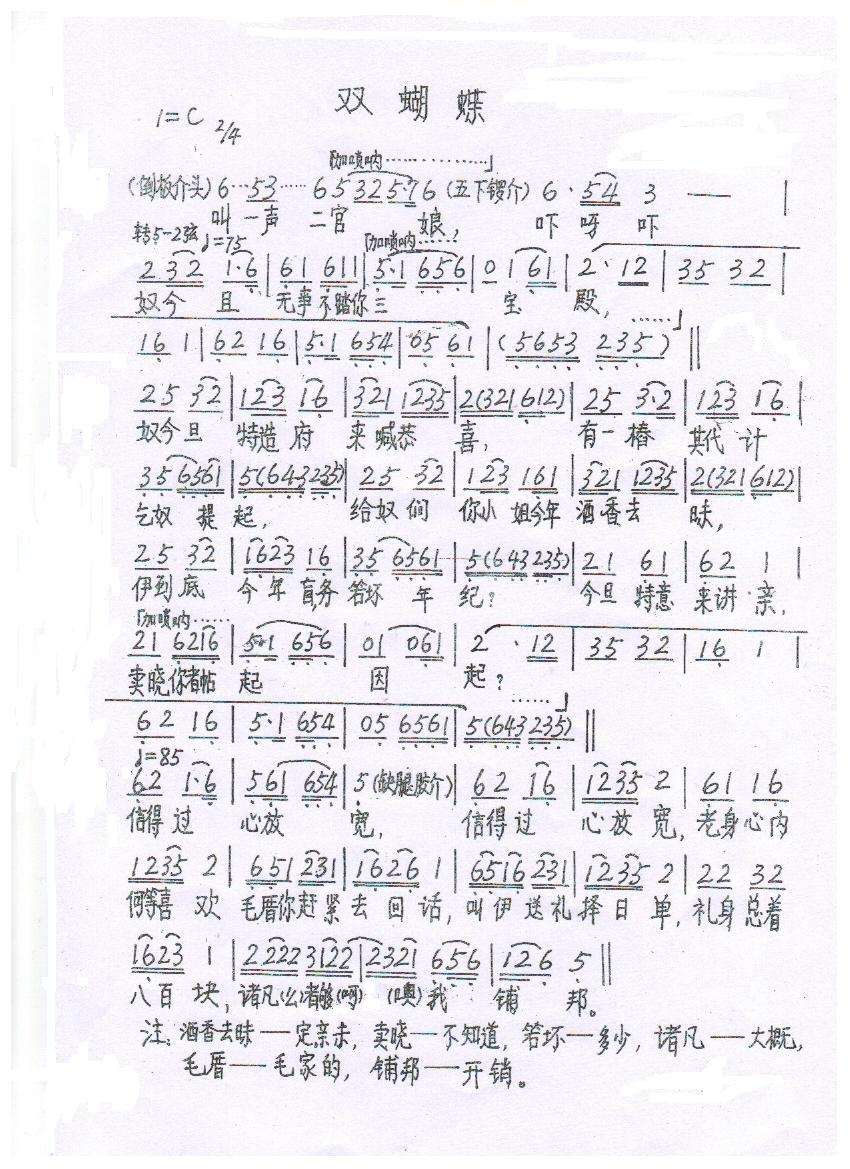 双蝴蝶
1=C 2/4
「加唢呐……………」
(倒板介头) 6···53······ 6 5 3 2 5·7 6 (五下锣介) 6· 54 3 —— |
叫一声 二官 娘, 吓 呀 吓
转5-2弦 ♩=75 「加唢呐……,
2 32 1·6 | 61 611 | 5·1 656 | 0 1 61 | 2· 12 | 35 32 |
奴今 且 无事不踏你三 宝 殿,
……」
16 1 | 62 16 | 5·1 654 | 05 61 | (5653 235) ‖
25 32 | 123 16 | 321 1235 | 2(321 612) | 25 3·2 | 123 16 |
奴今旦 特造府 来喊恭 喜, 有一樁 其代计
35 6561 | 5(643 235) | 25 32 | 123 161 | 321 1235 | 2(321 612) |
乞奴 提 起, 给奴们 你小姐今年 酒香去 昧,
25 32 | 1623 16 | 35 6561 | 5(643 235) | 21 61 | 62 1 |
伊到底 今年 若坏 年 纪? 今旦 特意 来讲亲,
「加唢呐……
21 6216 | 5·1 656 | 01 061 | 2 · 12 | 35 32 | 16 1 |
卖晓你者帖 起 因 起?
……」
62 16 | 5·1 654 | 05 6561 | 5(643 235) ‖
♩=85
62 1·6 | 561 654 | 5 (缺腿胶介) | 62 16 | 1235 2 | 61 16 |
信得过 心放 宽, 信得过 心放宽, 老身心内
1235 2 | 651 231 | 1626 1 | 6516 231 | 1235 2 | 22 32 |
何等喜欢 毛厝你赶紧去回话, 叫伊送礼择日单, 礼身总着
1623 1 | 2 222 3122 | 2321 656 | 126 5 ‖
八百块, 诸凡(么)者够(呵) (噢)我 铺 邦。
注: 酒香去昧——定亲未, 卖晓——不知道, 若坏——多少, 诸凡——大概,
毛厝——毛家的, 铺邦——开销。